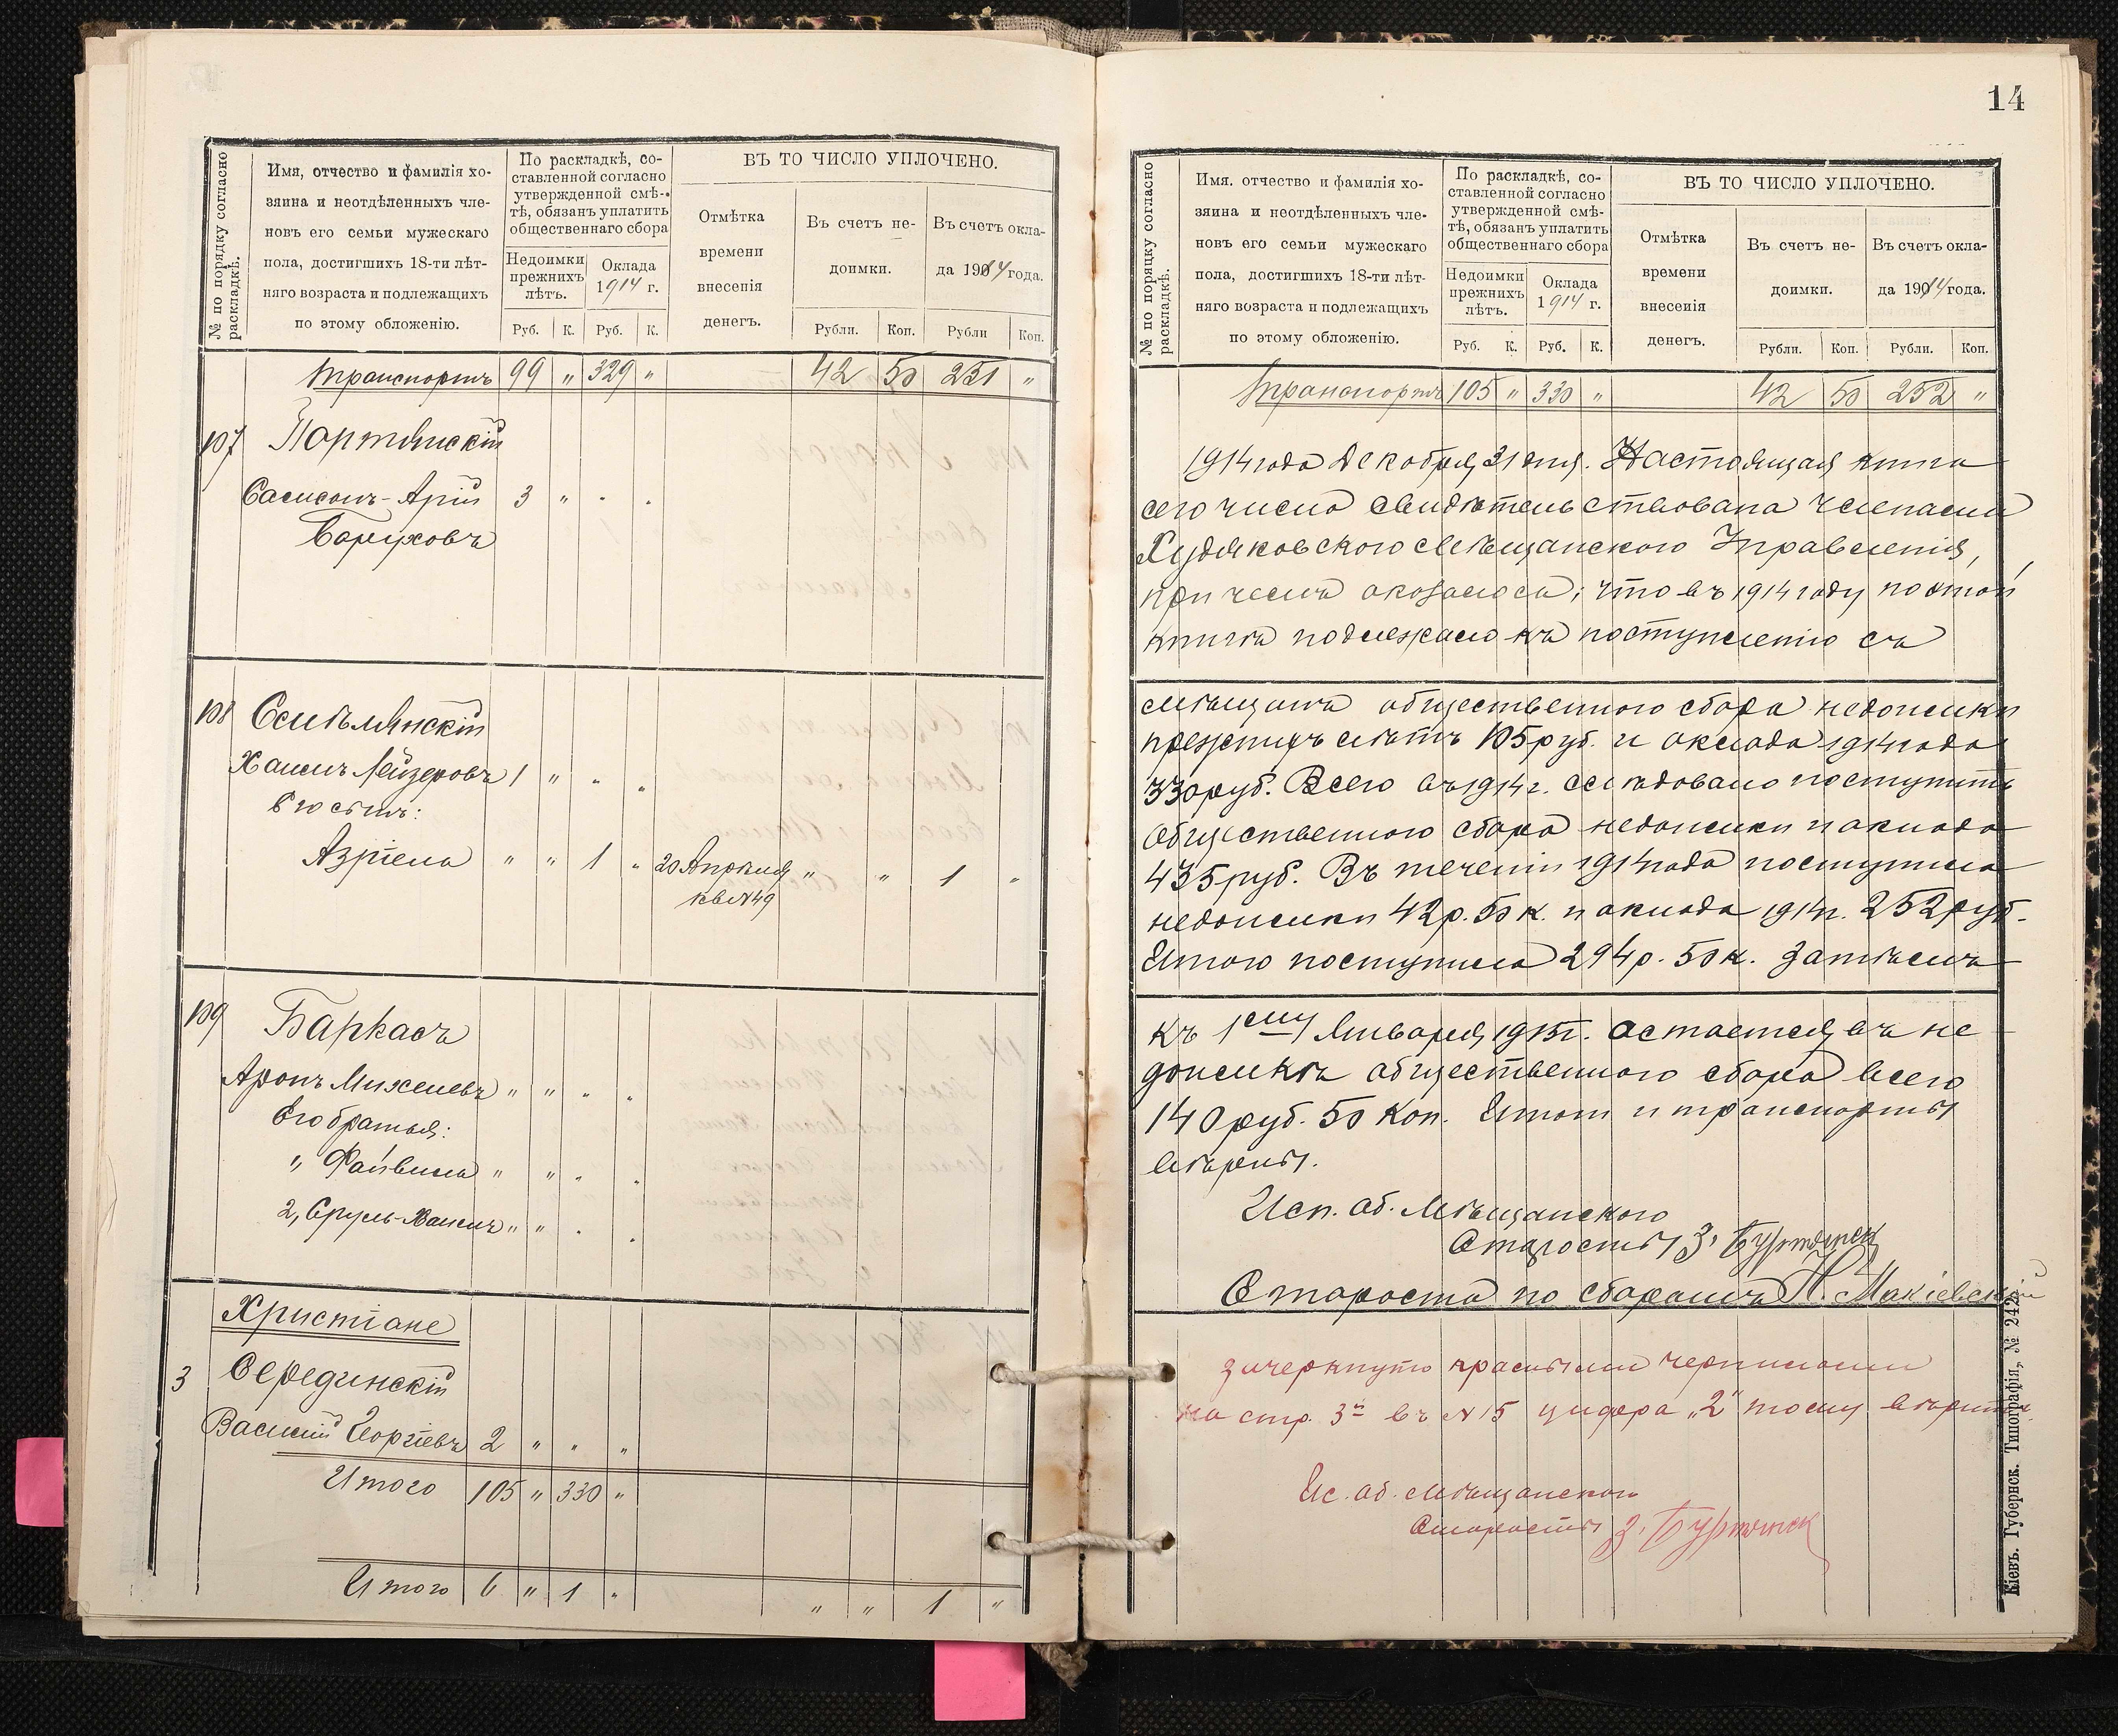 № по порядку согласно раскладкѣ.
Имя, отчество и фамилія хо-
зяина и неотдѣленныхъ чле-
новъ его семьи мужескаго
пола, достигшихъ 18-ти лѣт-
няго возраста и подлежащихъ
по этому обложенію.
По раскладкѣ, со-
ставленной согласно
утвержденной смѣ-
тѣ, обязанъ уплатить
общественнаго сбора
Недоимки
прежнихъ
лѣтъ.
Оклада
1914 г.
Руб. К. Руб. К.
ВЪ ТО ЧИСЛО УПЛОЧЕНО.
Отмѣтка
времени
внесенія
денегъ.
Въ счетъ не-
доимки.
Въ счетъ окла-
да 1914 года.
Рубли. Коп. Рубли Коп.
Транспортъ 99 " 329 " 42 50 251 "
107 Портянскій
Самсонъ-Арій 3 " " "
Боруховъ
108 Сми́лянскій
Хаимъ Лейзеровъ 1 " " "
Его сынъ:
Азріелъ " " 1 " 20 Апрѣля " " 1 "
кв № 49
109 Баркасъ
Аронъ Михелевъ " " " "
Его братья:
" Файвишъ " " " "
2, Сруль-Хаимъ " " " "
Христіане
3 Серединскій
Василій Георгіевъ 2 " " "
Итого 105 " 330 "
Итого 6 " 1 " " " 1 "
14
№ по порядку согласно раскладкѣ.
Имя. отчество и фамилія хо-
зяина и неотдѣленныхъ чле-
новъ его семьи мужескаго
пола, достигшихъ 18-ти лѣт-
няго возраста и подлежащихъ
по этому обложенію.
По раскладкѣ, со-
ставленной согласно
утвержденной смѣ-
тѣ, обязанъ уплатить
общественнаго сбора
Недоимки
прежнихъ
лѣтъ.
Оклада
1914 г.
Руб. К. Руб. К.
ВЪ ТО ЧИСЛО УПЛОЧЕНО.
Отмѣтка
времени
внесенія
денегъ.
Въ счетъ не-
доимки.
Въ счетъ окла-
да 1914 года.
Рубли. Коп. Рубли. Коп.
Транспортъ 105 " 330 " 42 50 252 "
1914 года Декабря 31 дня. Настоящая книга
сего числа свидѣтельствована членами
Ходяковского Мѣщанского Управленія,
при чемъ оказалось; что въ 1914 году по этой
книгѣ подлежало къ поступленію съ
мѣщанъ общественного сбора недоимки
прежнихъ лѣтъ 105 руб. и оклада 1914 года
330 руб. Всего въ 1914 г. слѣдовало поступить
общественного сбора недоимки и оклада
435 руб. Въ теченіи 1914 года поступило
недоимки 42 р. 50 к. и оклада 1914 г. 252 руб.
Итого поступило 294 р. 50 к. Затѣмъ
къ 1ему Января 1915 г. остается въ не
доимкѣ общественного сбора всего
140 руб. 50 коп. Итоги и транспорты
вѣрны.
Исп. об. Мѣщанского
Старосты З. Буртянск
Староста по сборамъ Н. Макіевскій
Зачеркнуто красными чернилами
на стр. 3й въ № 15 цифра „2" тому вѣрить.
Ис. об. мѣщанского
Старосты З. Буртянск
Кіевъ. Губернск. Типографія, № 242